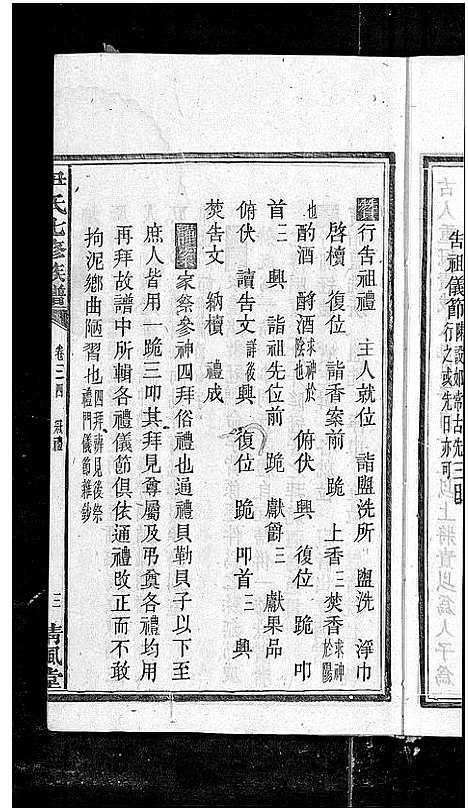 告祖儀節陳設如常古先三日
行之或先日亦可
贊行告祖禮 主人就位 詣盥洗所 盥洗 淨巾
啓櫝 復位 詣香案前 跪 上香三焚香求神於陽
也酌酒 酹酒求神於陰也 俯伏 興 復位 跪 叩
首三 興 詣祖先位前 跪 獻爵三 獻果品
俯伏 讀告文詳後興 復位 跪 叩首三 興
焚告文 納櫝 禮成
家祭參神四拜俗禮也通禮貝勒貝子以下至
庶人皆用一跪三叩其拜見尊屬及弔奠各禮均用
再拜故譜中所輯各禮儀節俱依通禮改正而不敢
拘泥鄉曲陋習也四拜辨見後祭禮門儀節雜鈔
尹氏七修族譜 卷三四 冠禮 三 清風堂